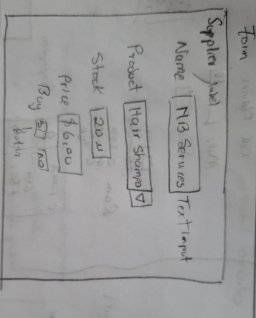 Form
Supplier label
Name NB Services Text input
Product Hair Shampo
Stock 20
Price $6.00
Buy